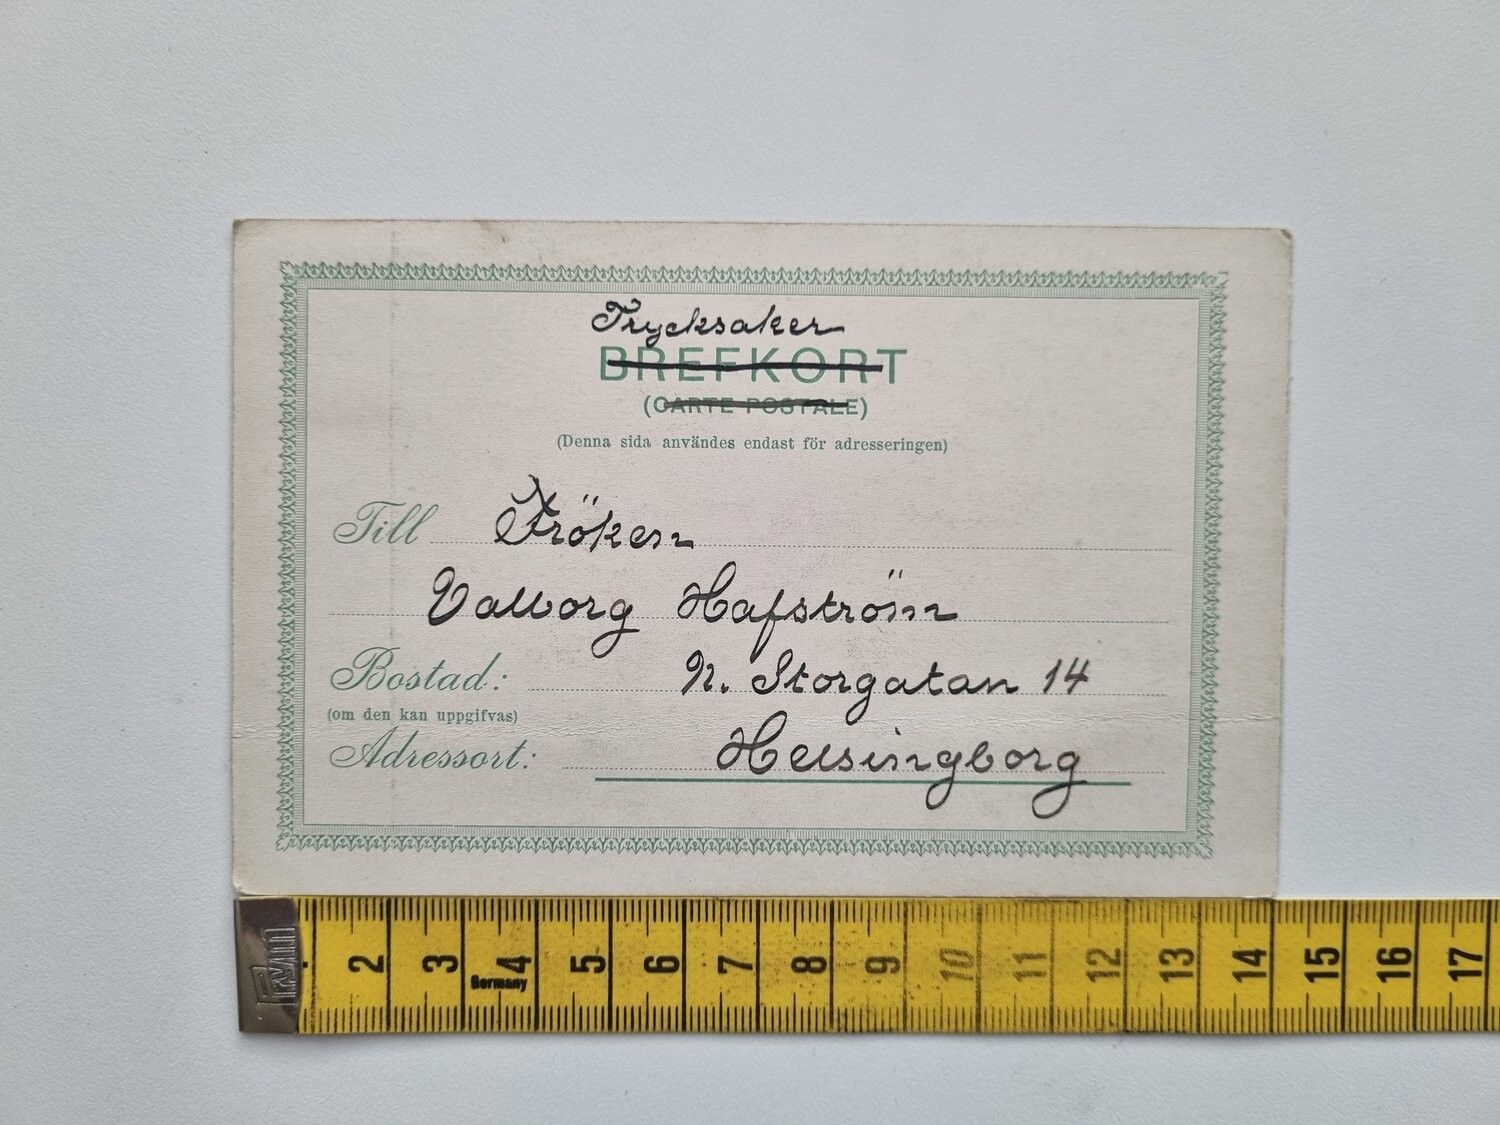 Trycksaker
BREFKORT
(CARTE POSTALE)
(Denna sida användes endast för adresseringen)
Till Fröken
Valborg Hafström
Bostad: N. Storgatan 14
(om den kan uppgifvas)
Adressort: Helsingborg
Prym 2 3 4 5 6 7 8 9 10 11 12 13 14 15 16 17
Germany